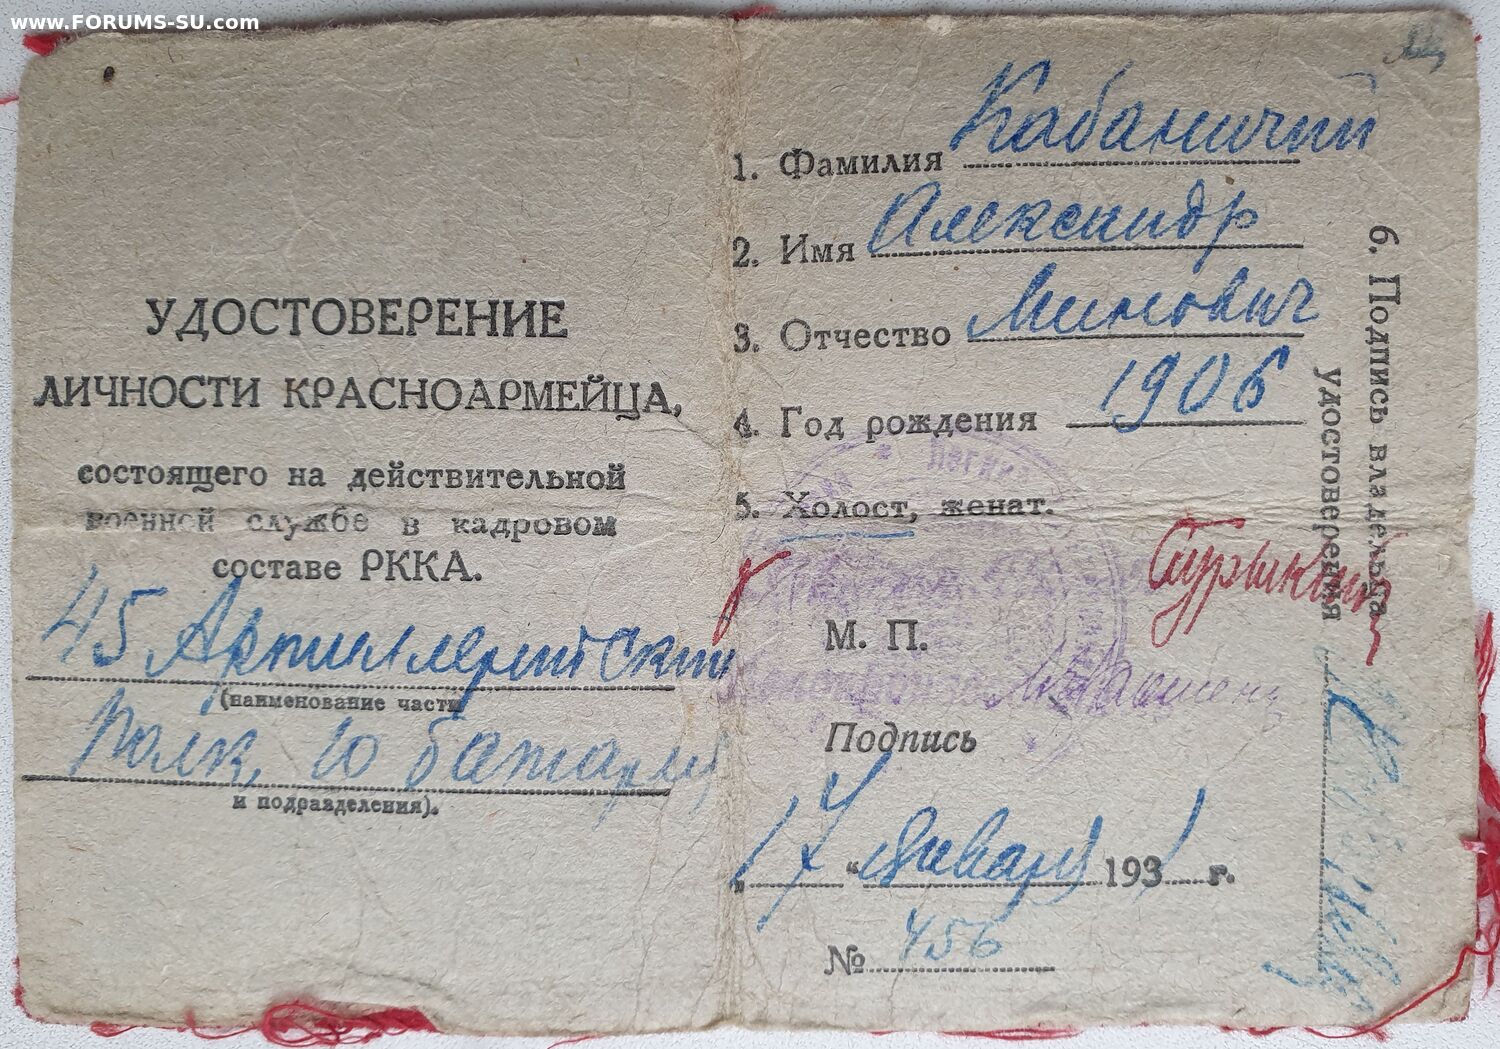 www.FORUMS-SU.com
УДОСТОВЕРЕНИЕ
ЛИЧНОСТИ КРАСНОАРМЕЙЦА,
состоящего на действительной
военной службе в кадровом
составе РККА.
45 Артиллерийский
(наименование части
Полк, 10 батарея
и подразделения).
1. Фамилия Кабаничий
2. Имя Александр
3. Отчество Минович
4. Год рождения 1906
5. Холост, женат.
М. П.
Подпись
„17“ Января 1931 г.
№ 456
6. Подпись владельца
удостоверения